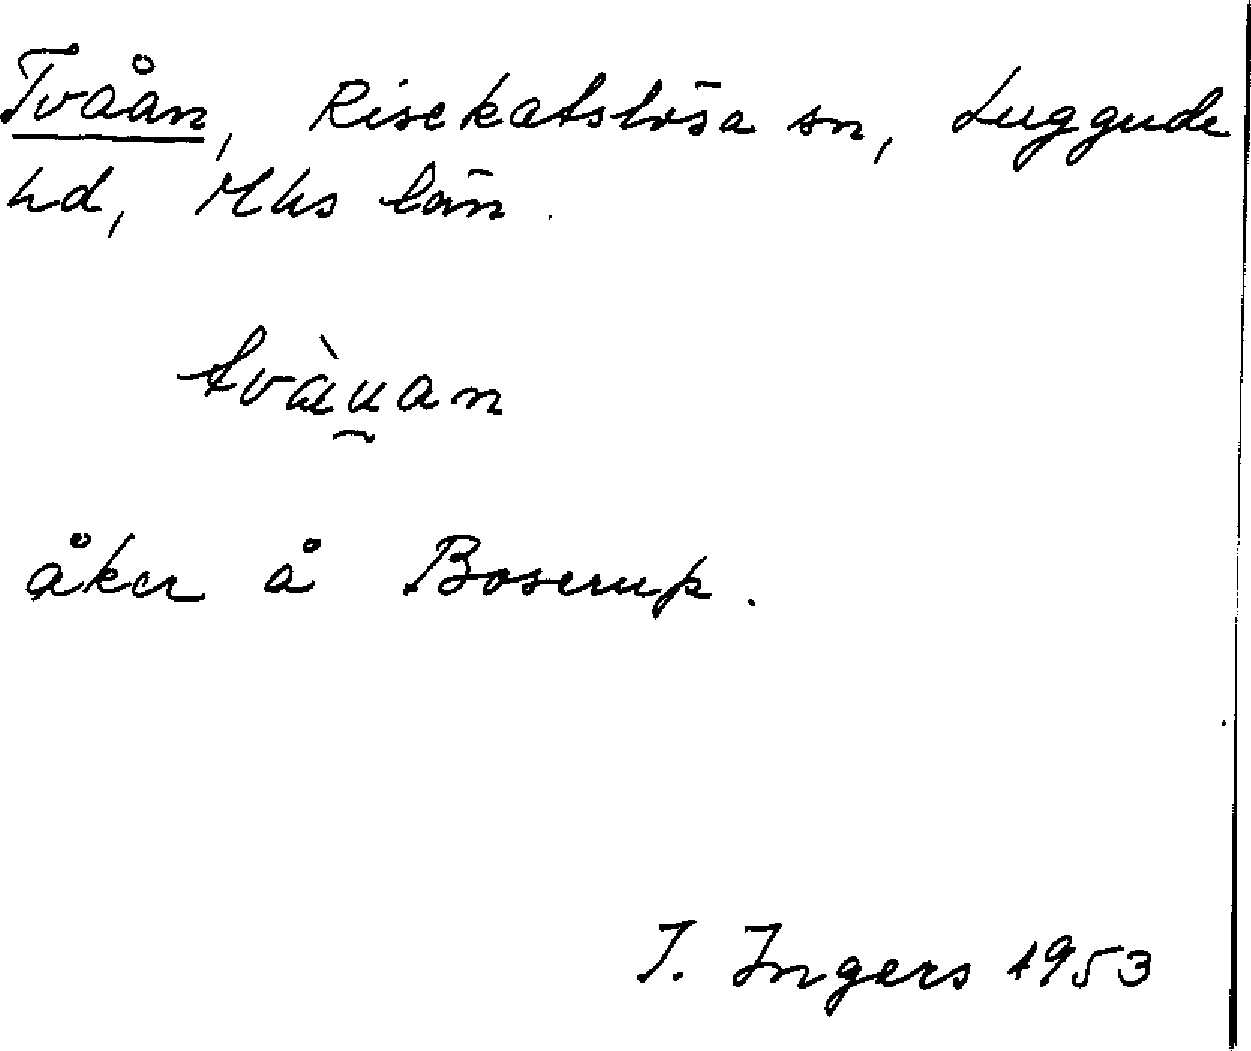 Tvåån, Risekatslösa sn, Luggude
hd, Mhs län.
tvàu̯an
åker å Boserup.
I. Ingers 1953